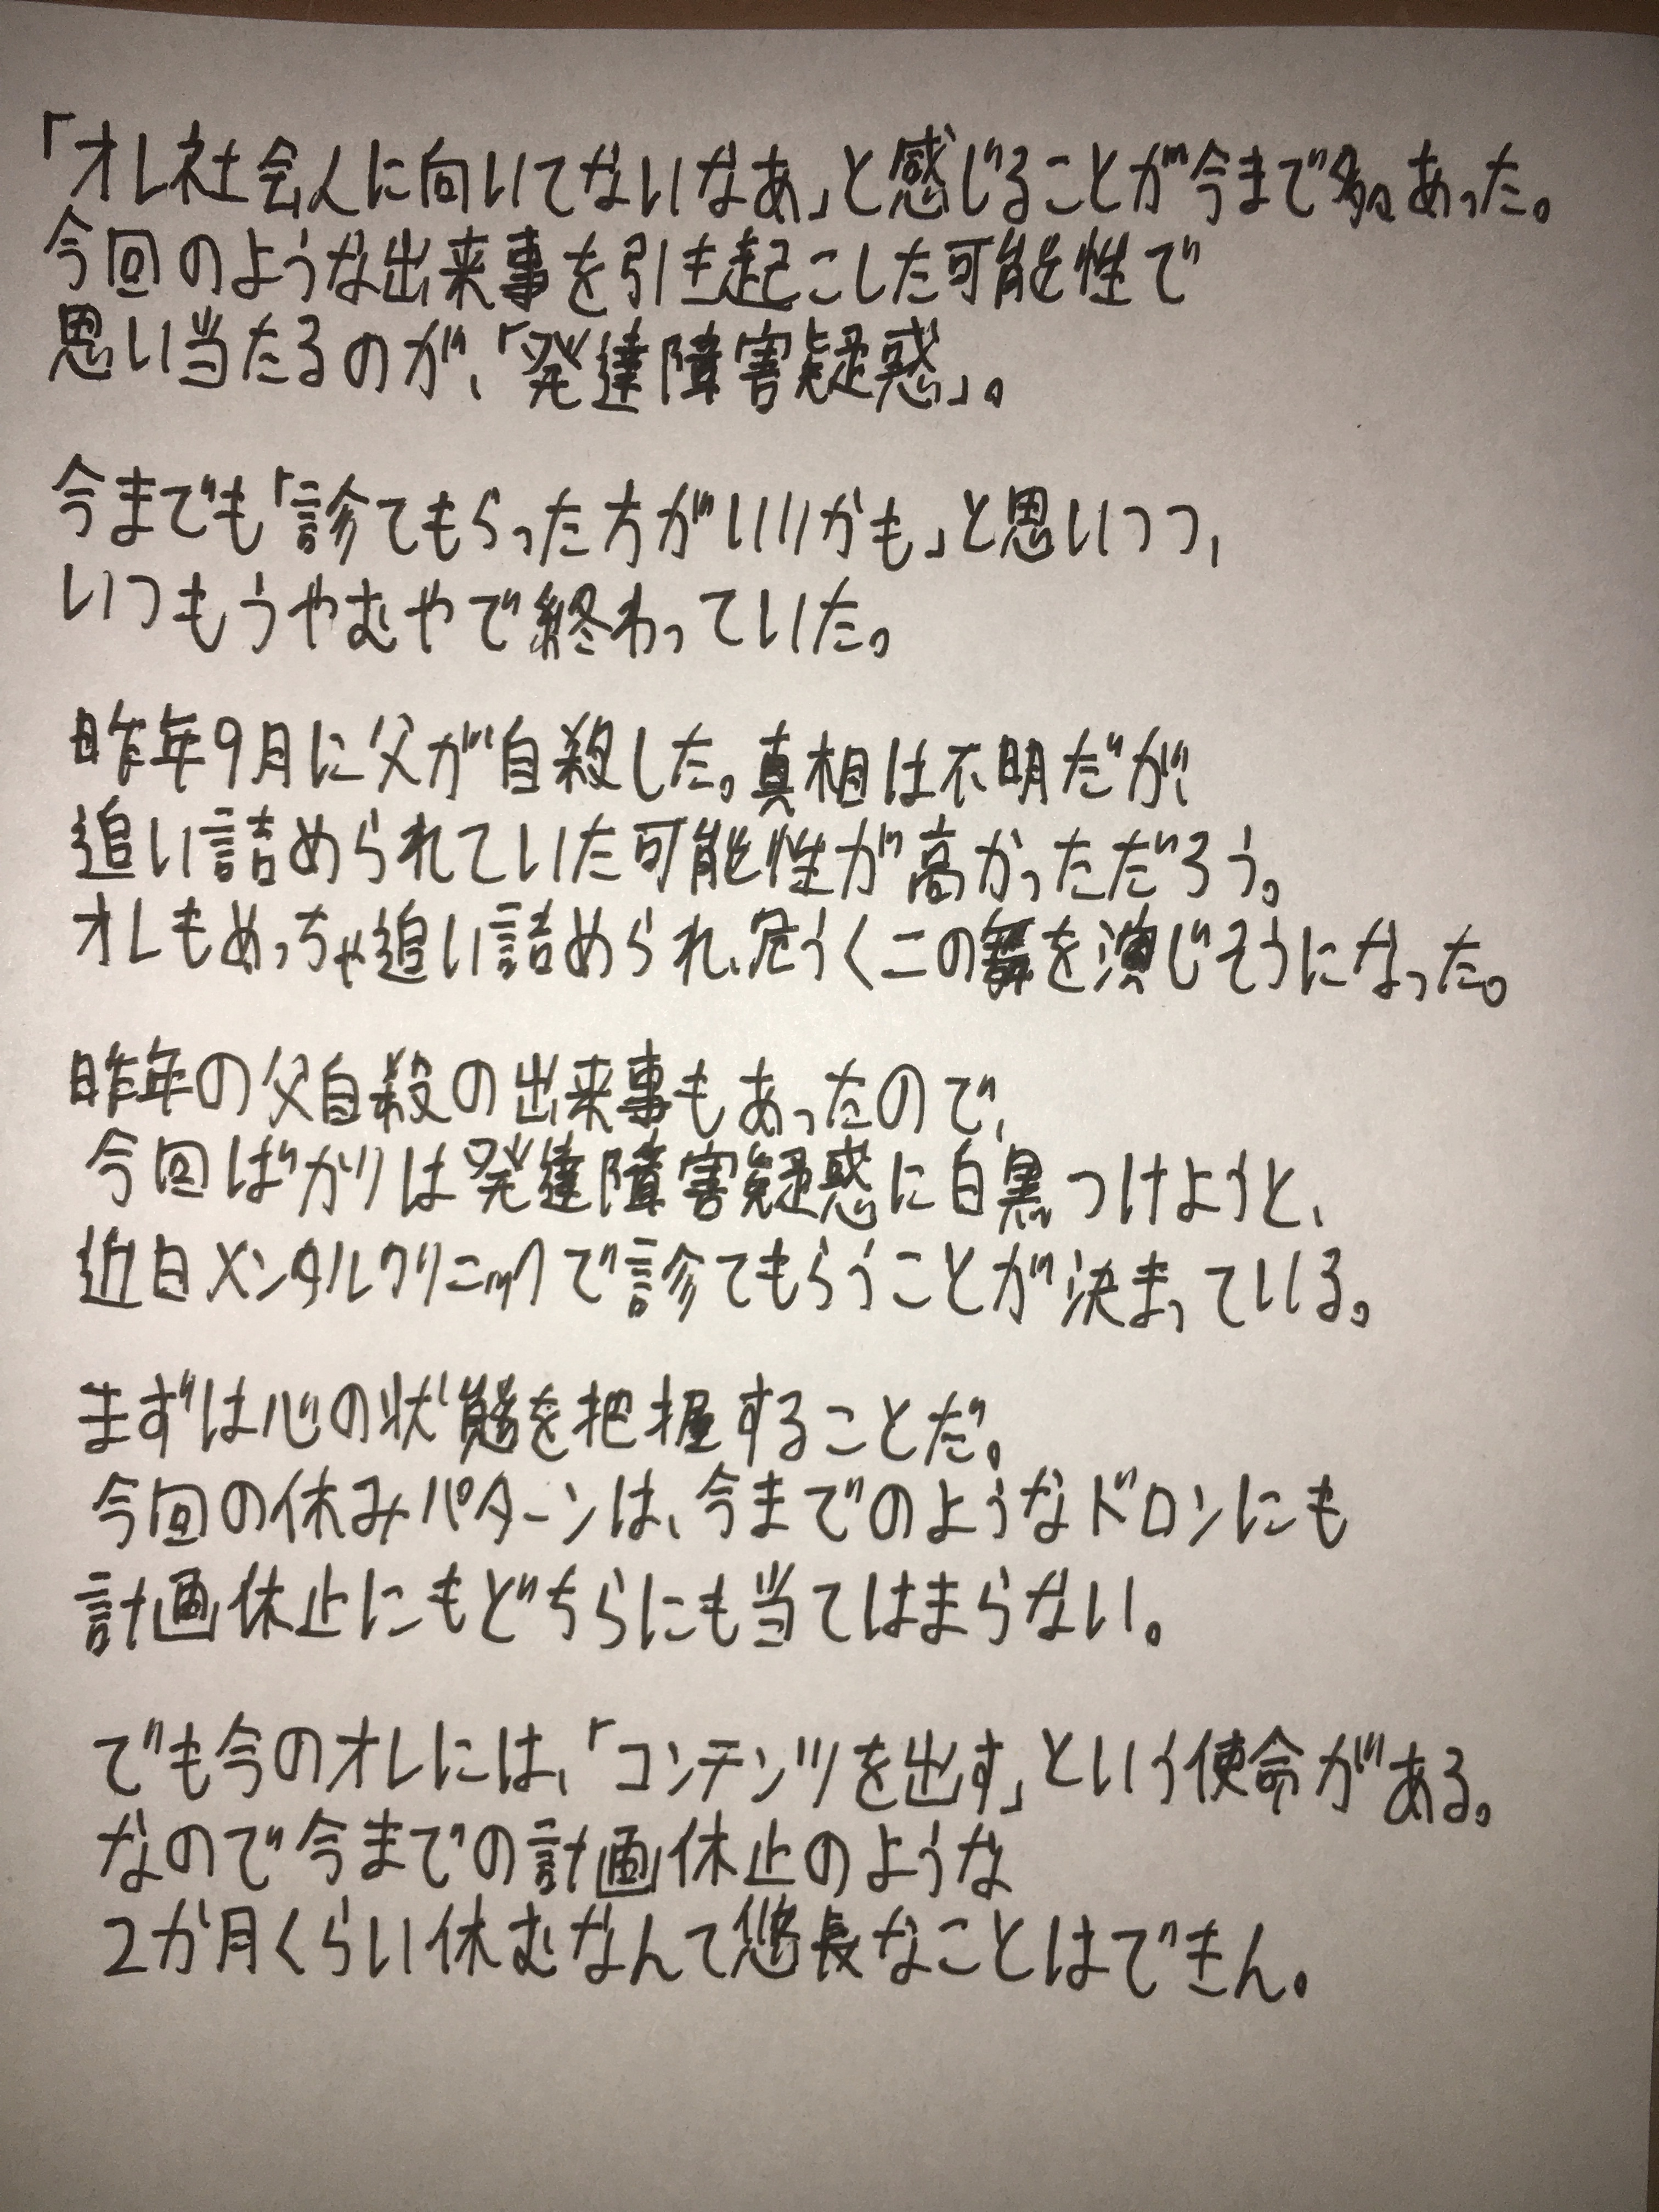 「オレ社会人に向いてないなあ」と感じることが今まで多々あった。
今回のような出来事を引き起こした可能性で
思い当たるのが、「発達障害疑惑」。
今までも「診てもらった方がいいかも」と思いつつ、
いつもうやむやで終わっていた。
昨年9月に父が自殺した。真相は不明だが、
追い詰められていた可能性が高かっただろう。
オレもめっちゃ追い詰められ、危うく二の舞を演じそうになった。
昨年の父自殺の出来事もあったので、
今回ばかりは発達障害疑惑に白黒つけようと、
近日メンタルクリニックで診てもらうことが決まっている。
まずは心の状態を把握することだ。
今回の休みパターンは、今までのようなドロンにも
計画休止にもどちらにも当てはまらない。
でも今のオレには、「コンテンツを出す」という使命がある。
なので今までの計画休止のような
2か月くらい休むなんて悠長なことはできん。